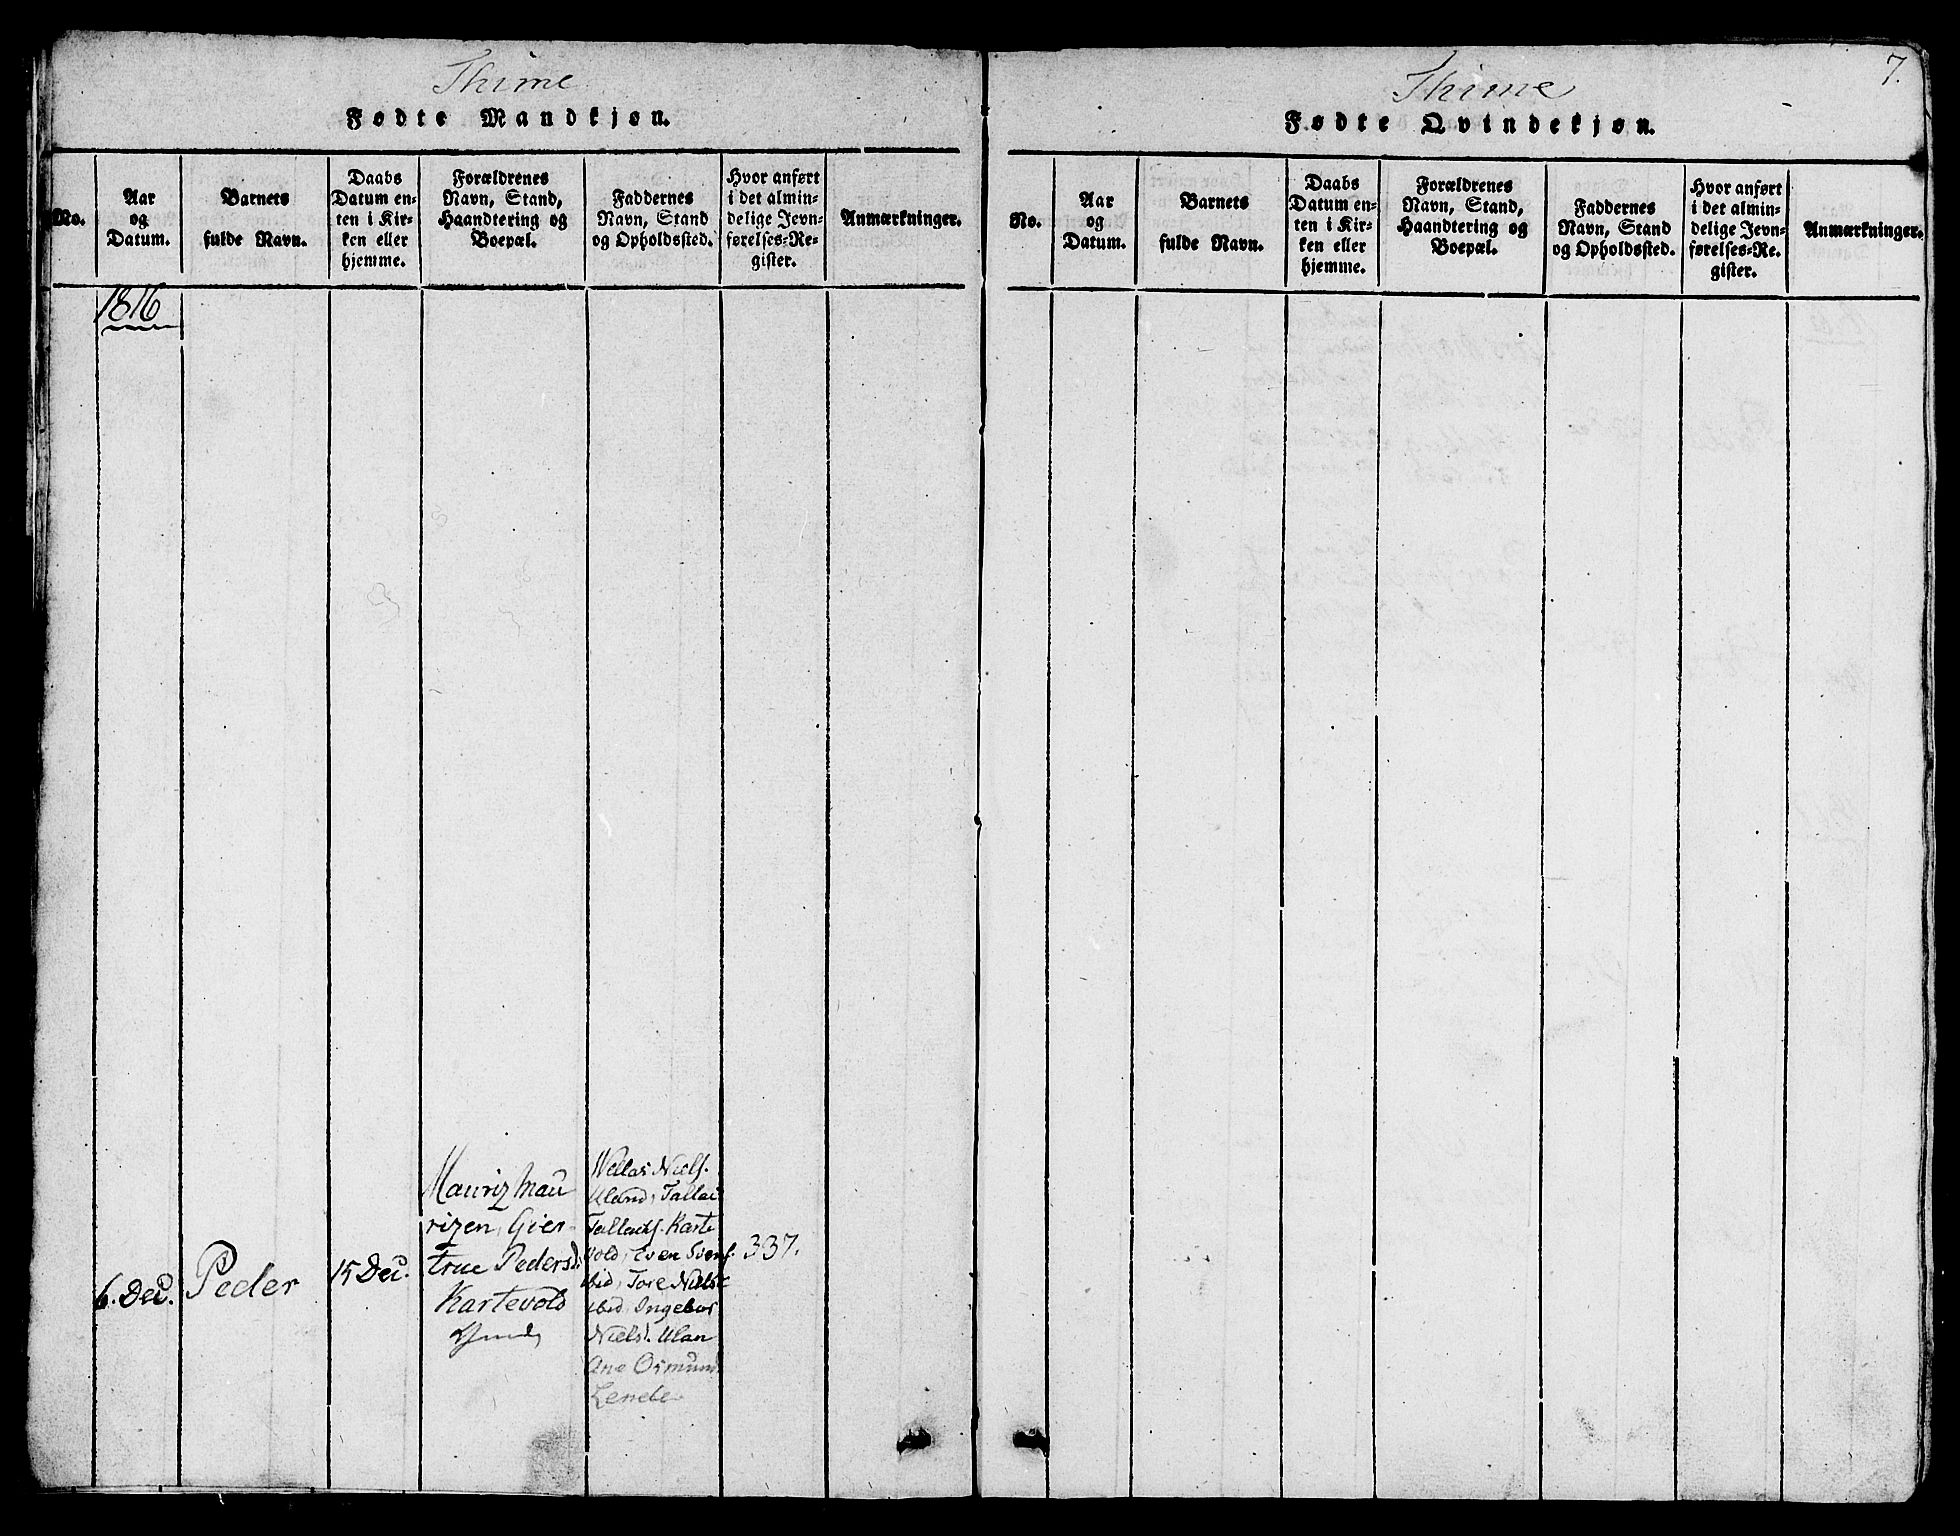 Thime
Fødte Mandkjøn.
No.
Aar
og
Datum.
Barnets
fulde Navn.
Daabs
Datum en-
ten i Kir-
ken eller
hjemme.
Forældrenes
Navn, Stand,
Haandtering og
Boepæl.
Faddernes
Navn, Stand
og Opholdssted.
Hvor anført
i det almin-
delige Jevn-
førelses-Re-
gister.
Anmærkninger.
1816
6. Dec.
Peder
15 Dec.
Mauriz Mau
rizen, Gier-
true Pedersd:
Kartevold
Niels.
Uland, Tallac
Tallachs. Karte
vold, Even Svens.
ibid, Tore Niels
ibid, Ingebor
Nielsd. Ulan
Ane Osmund
Lende
337.
7.
Thime
Fødte Qvindekjøn.
No.
Aar
og
Datum.
Barnets
fulde Navn.
Daabs
Datum en-
ten i Kir-
ken eller
hjemme.
Forældrenes
Navn, Stand,
Haandtering og
Boepæl.
Faddernes
Navn, Stand
og Opholdssted.
Hvor anført
i det almin-
delige Jevn-
førelses-Re-
gister.
Anmærkninger.